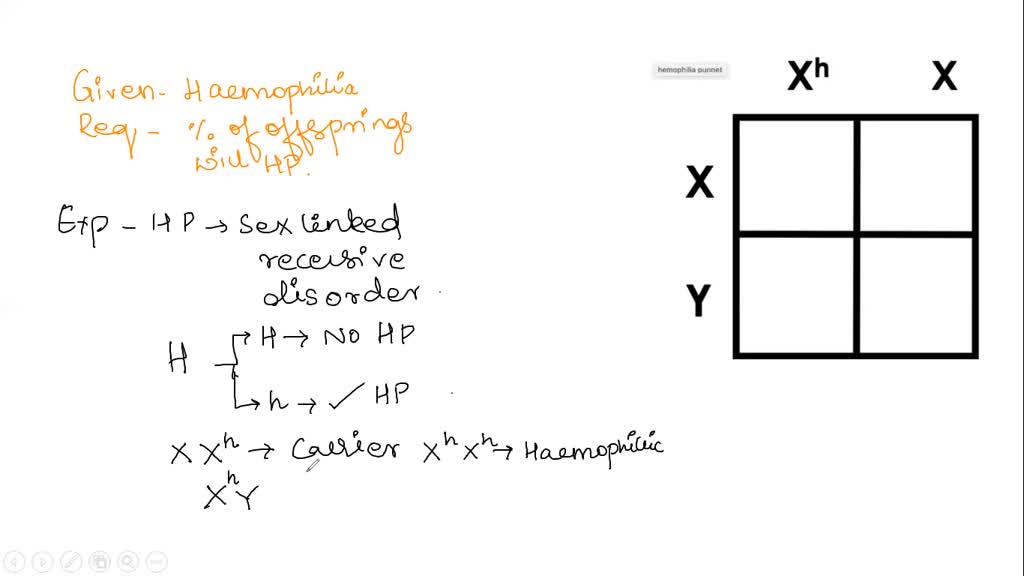 Given - Haemophilia
Req - % of offsprings
will HP.
Exp - HP → Sex linked
recessive
disorder.
H → No HP
H
h → ✓ HP
X Xʰ → Carrier XʰXʰ → Haemophilic
XʰY
hemophilia punnet
Xʰ X
X
Y